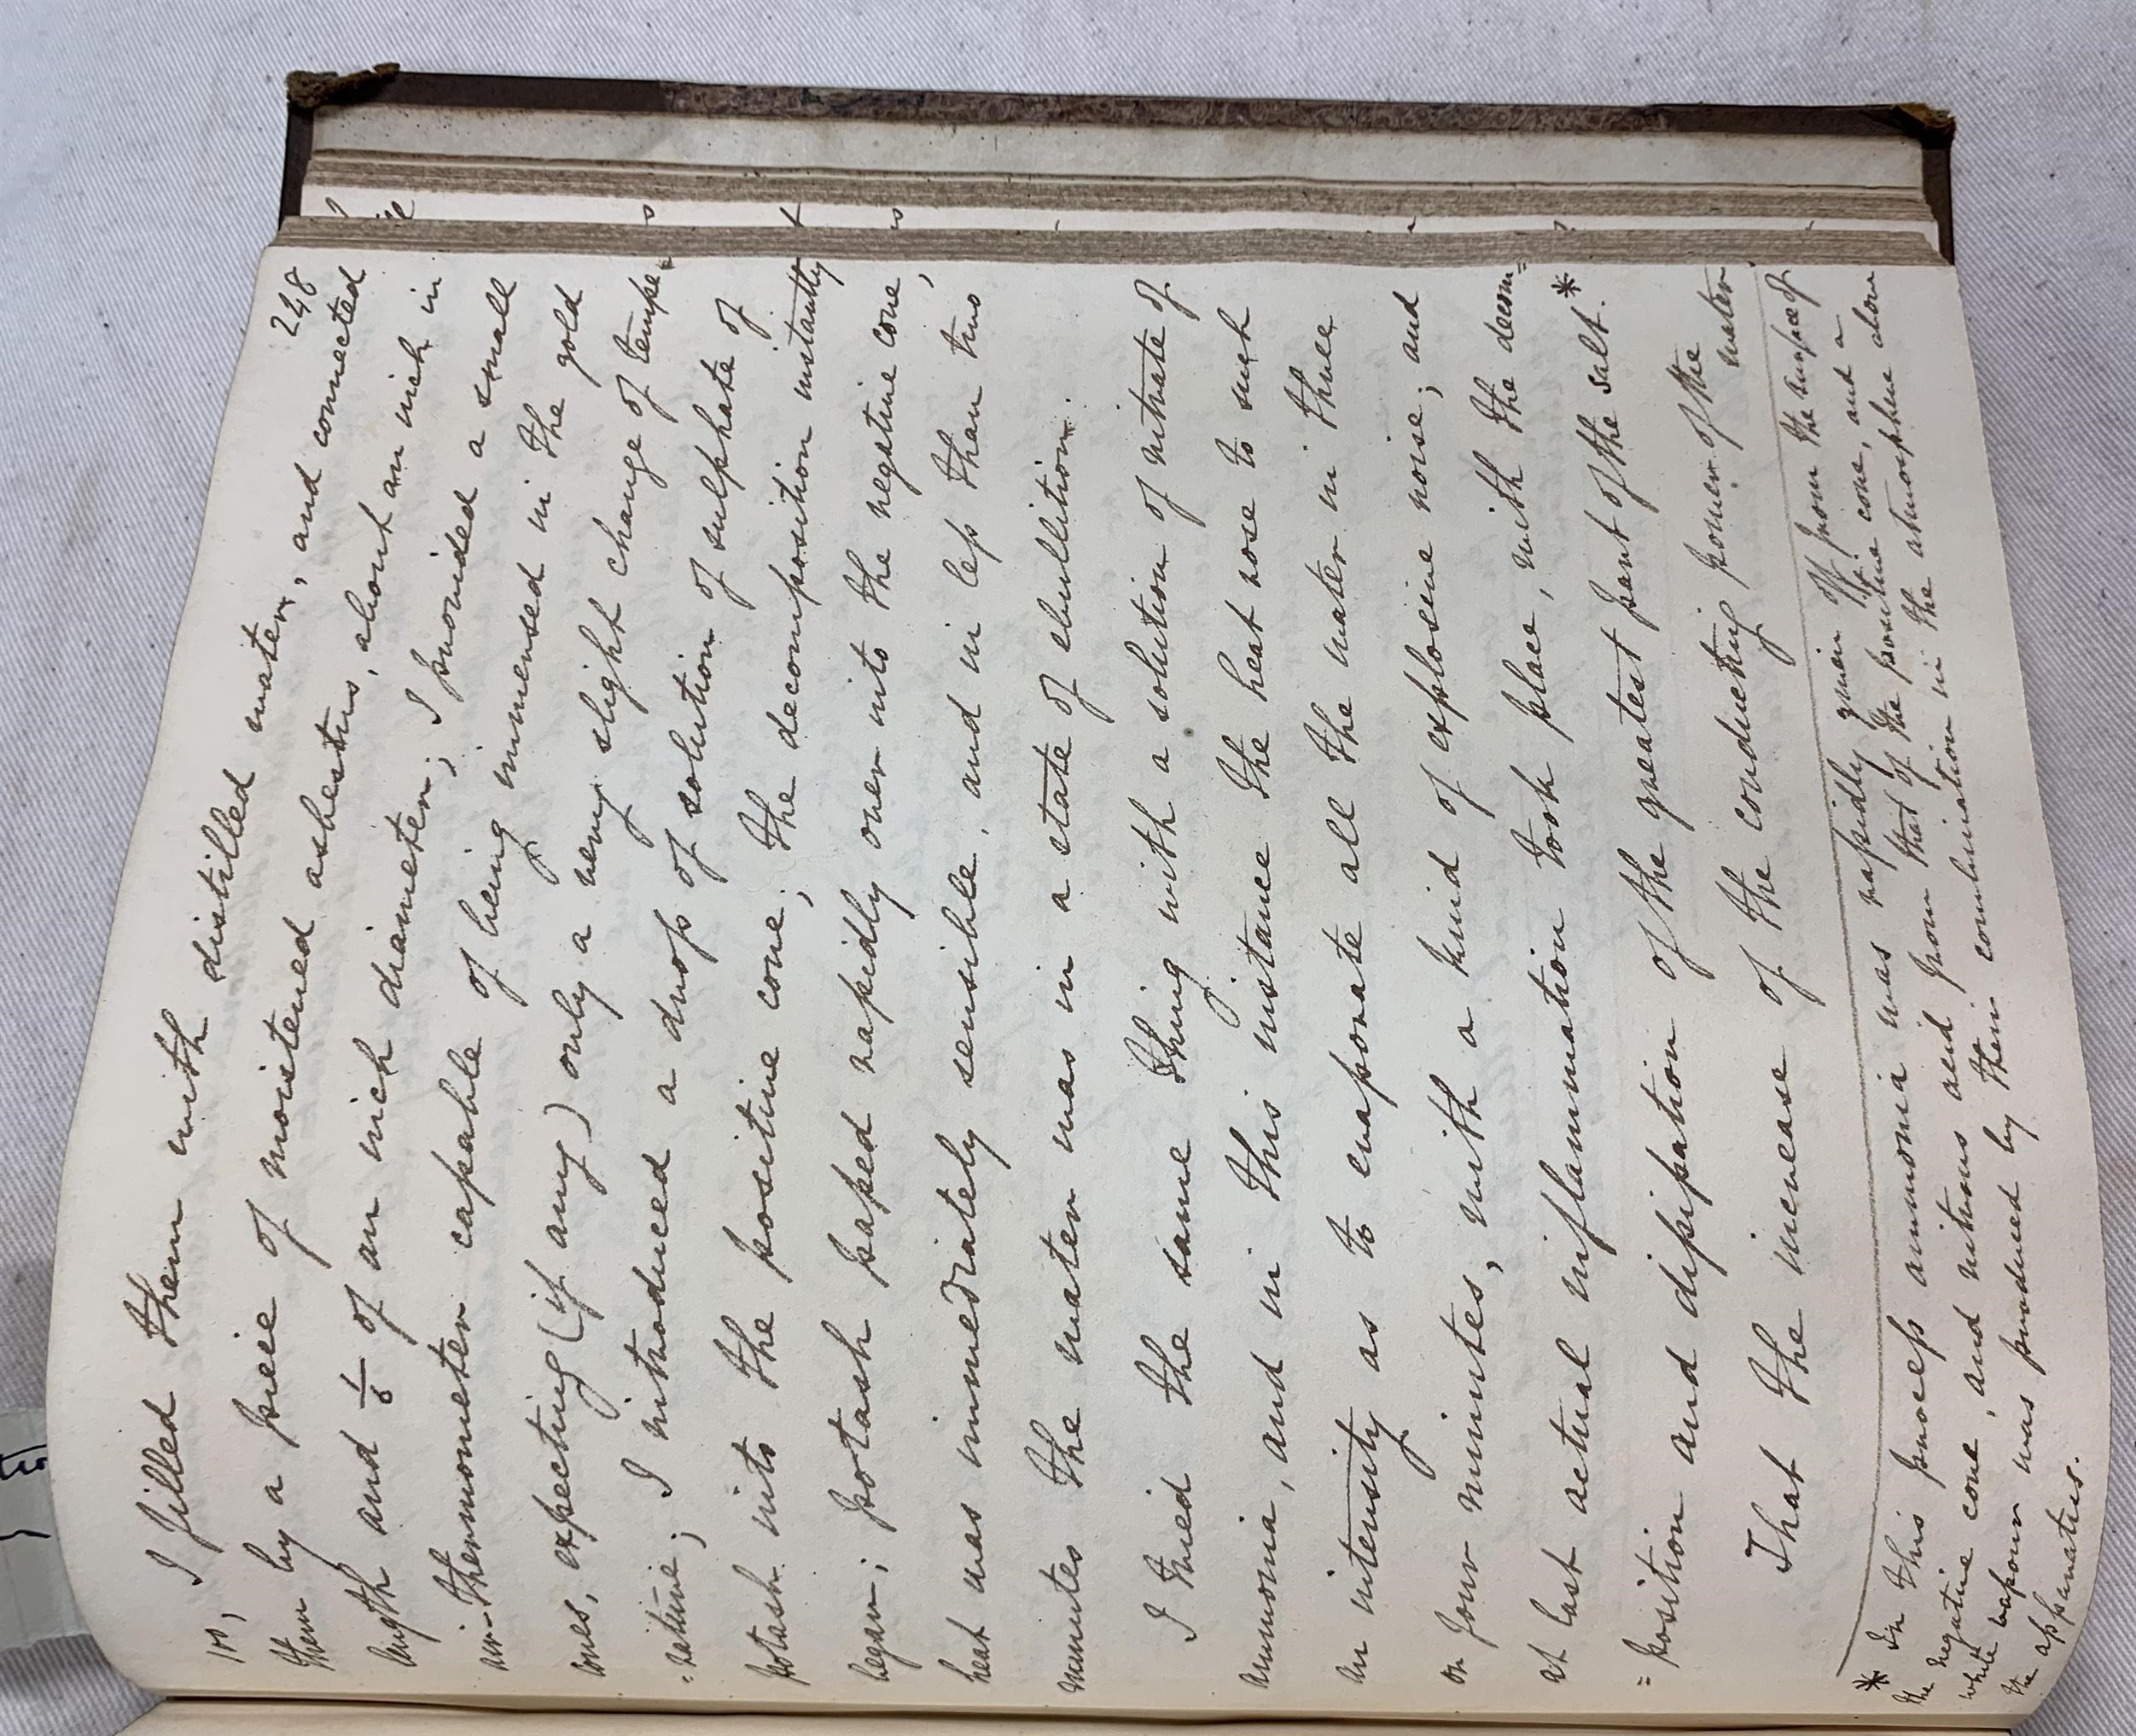 248
I filled them with distilled water, and connected
them by a piece of moistened asbestus, about an inch in
length and 1/6 of an inch diameter; I provided a small
air-thermometer capable of being immersed in the gold
cones, expecting (if any) only a very slight change of tempe=
=rature; I introduced a drop of solution of sulphate of
potash into the positive cone; the decomposition instantly
began; potash passed rapidly over into the negative cone,
heat was immediately sensible, and in less than two
minutes the water was in a state of ebullition.
I tried the same thing with a solution of nitrate of
ammonia, and in this instance the heat rose to such
an intensity as to evaporate all the water in three
or four minutes, with a kind of explosive noise; and
at last actual inflammation took place, with the decom=
=position and dissipation of the greatest part of the salt.*
That the increase of the conducting power of the water
* In this process ammonia was rapidly given off from the surface of
the negative cone, and nitrous acid from that of the positive cone, and a
white vapour was produced by their combination in the atmosphere above
the apparatus.